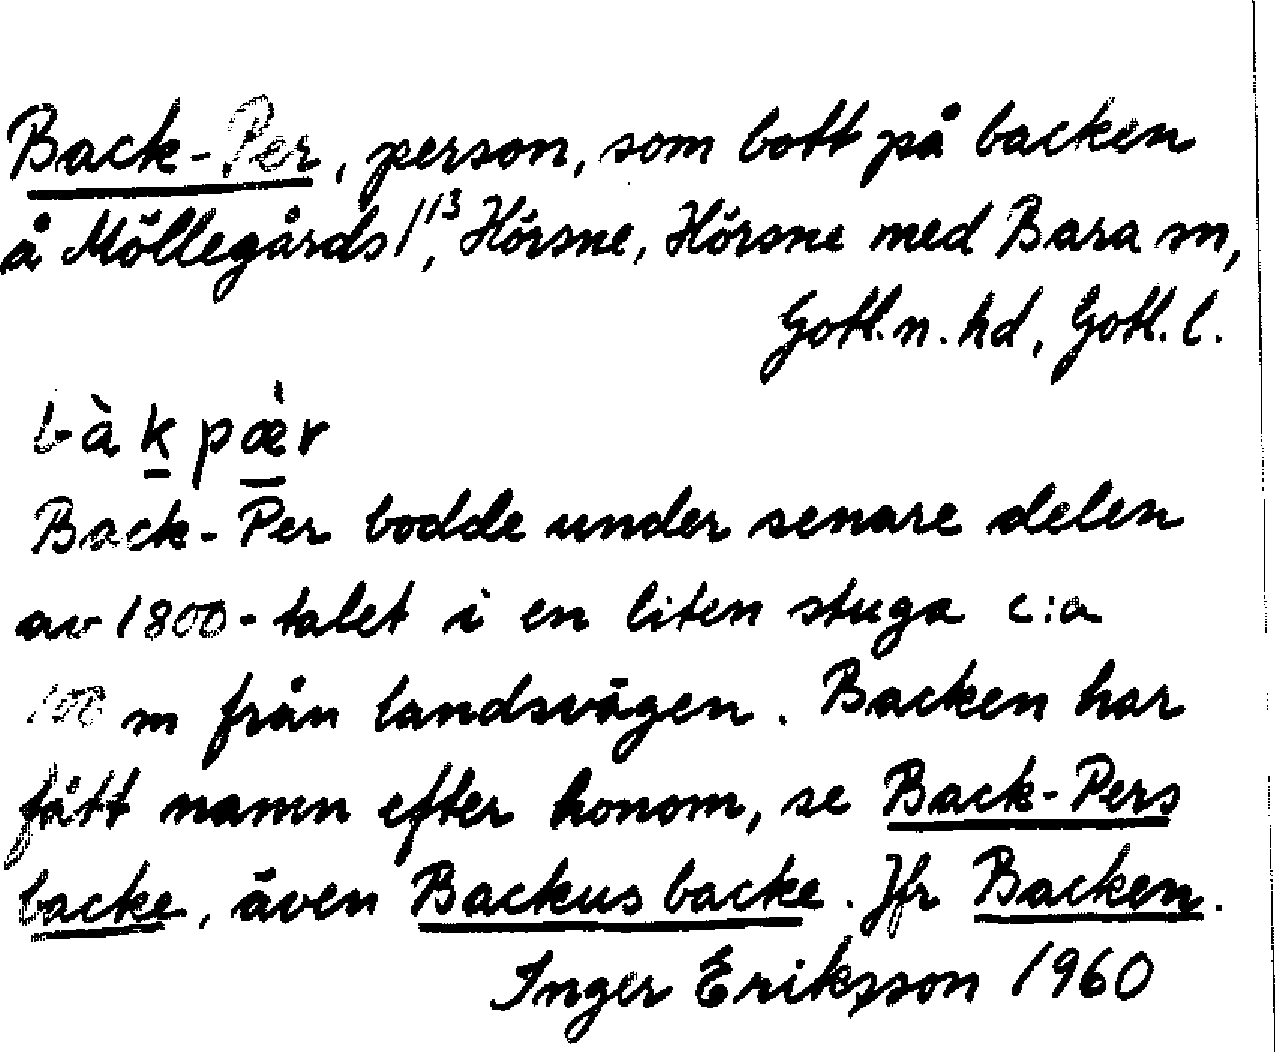 Back-Per, person, som bott på backen
å Möllegårds 1¹³, Hörsne, Hörsne med Bara sn,
Gotl. n. hd, Gotl. l.
bàkpæ̀r
Back-Per bodde under senare delen
av 1800-talet i en liten stuga c:a
100 m från landsvägen. Backen har
fått namn efter honom, se Back-Pers
backe, även Backus backe. Jfr Backen.
Inger Eriksson 1960